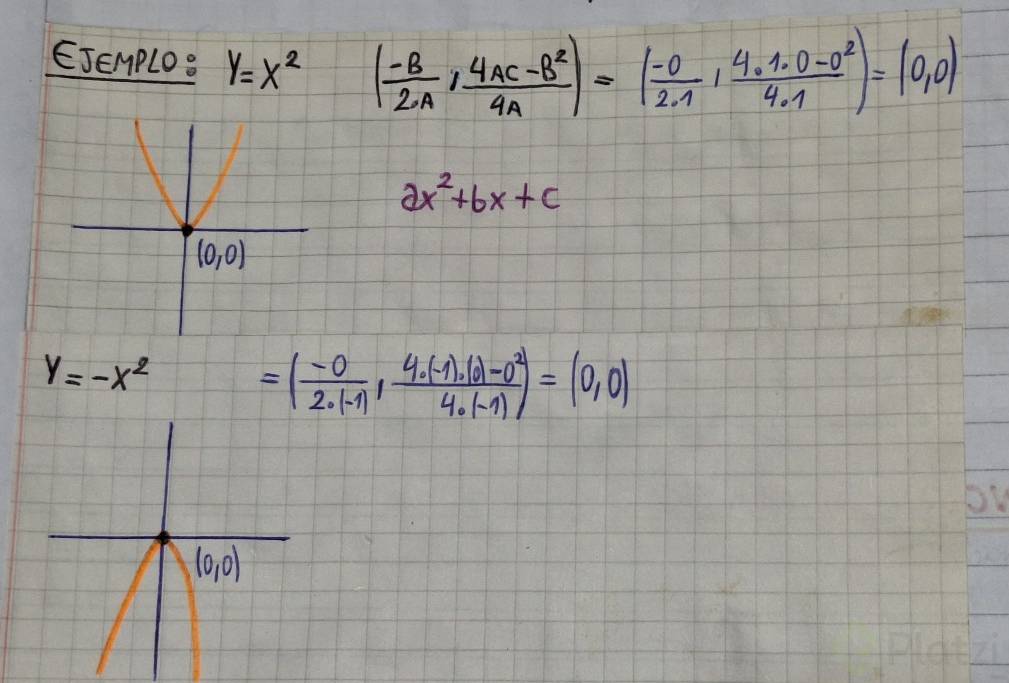 EJEMPLO: Y=X² (-B/2.A, 4AC-B²/4A) = (-0/2.1, 4.1.0-0²/4.1) = (0,0)
ax²+bx+c
(0,0)
Y=-X² = (-0/2.(-1), 4.(-1).(0)-0²/4.(-1)) = (0,0)
(0,0)
Platzi